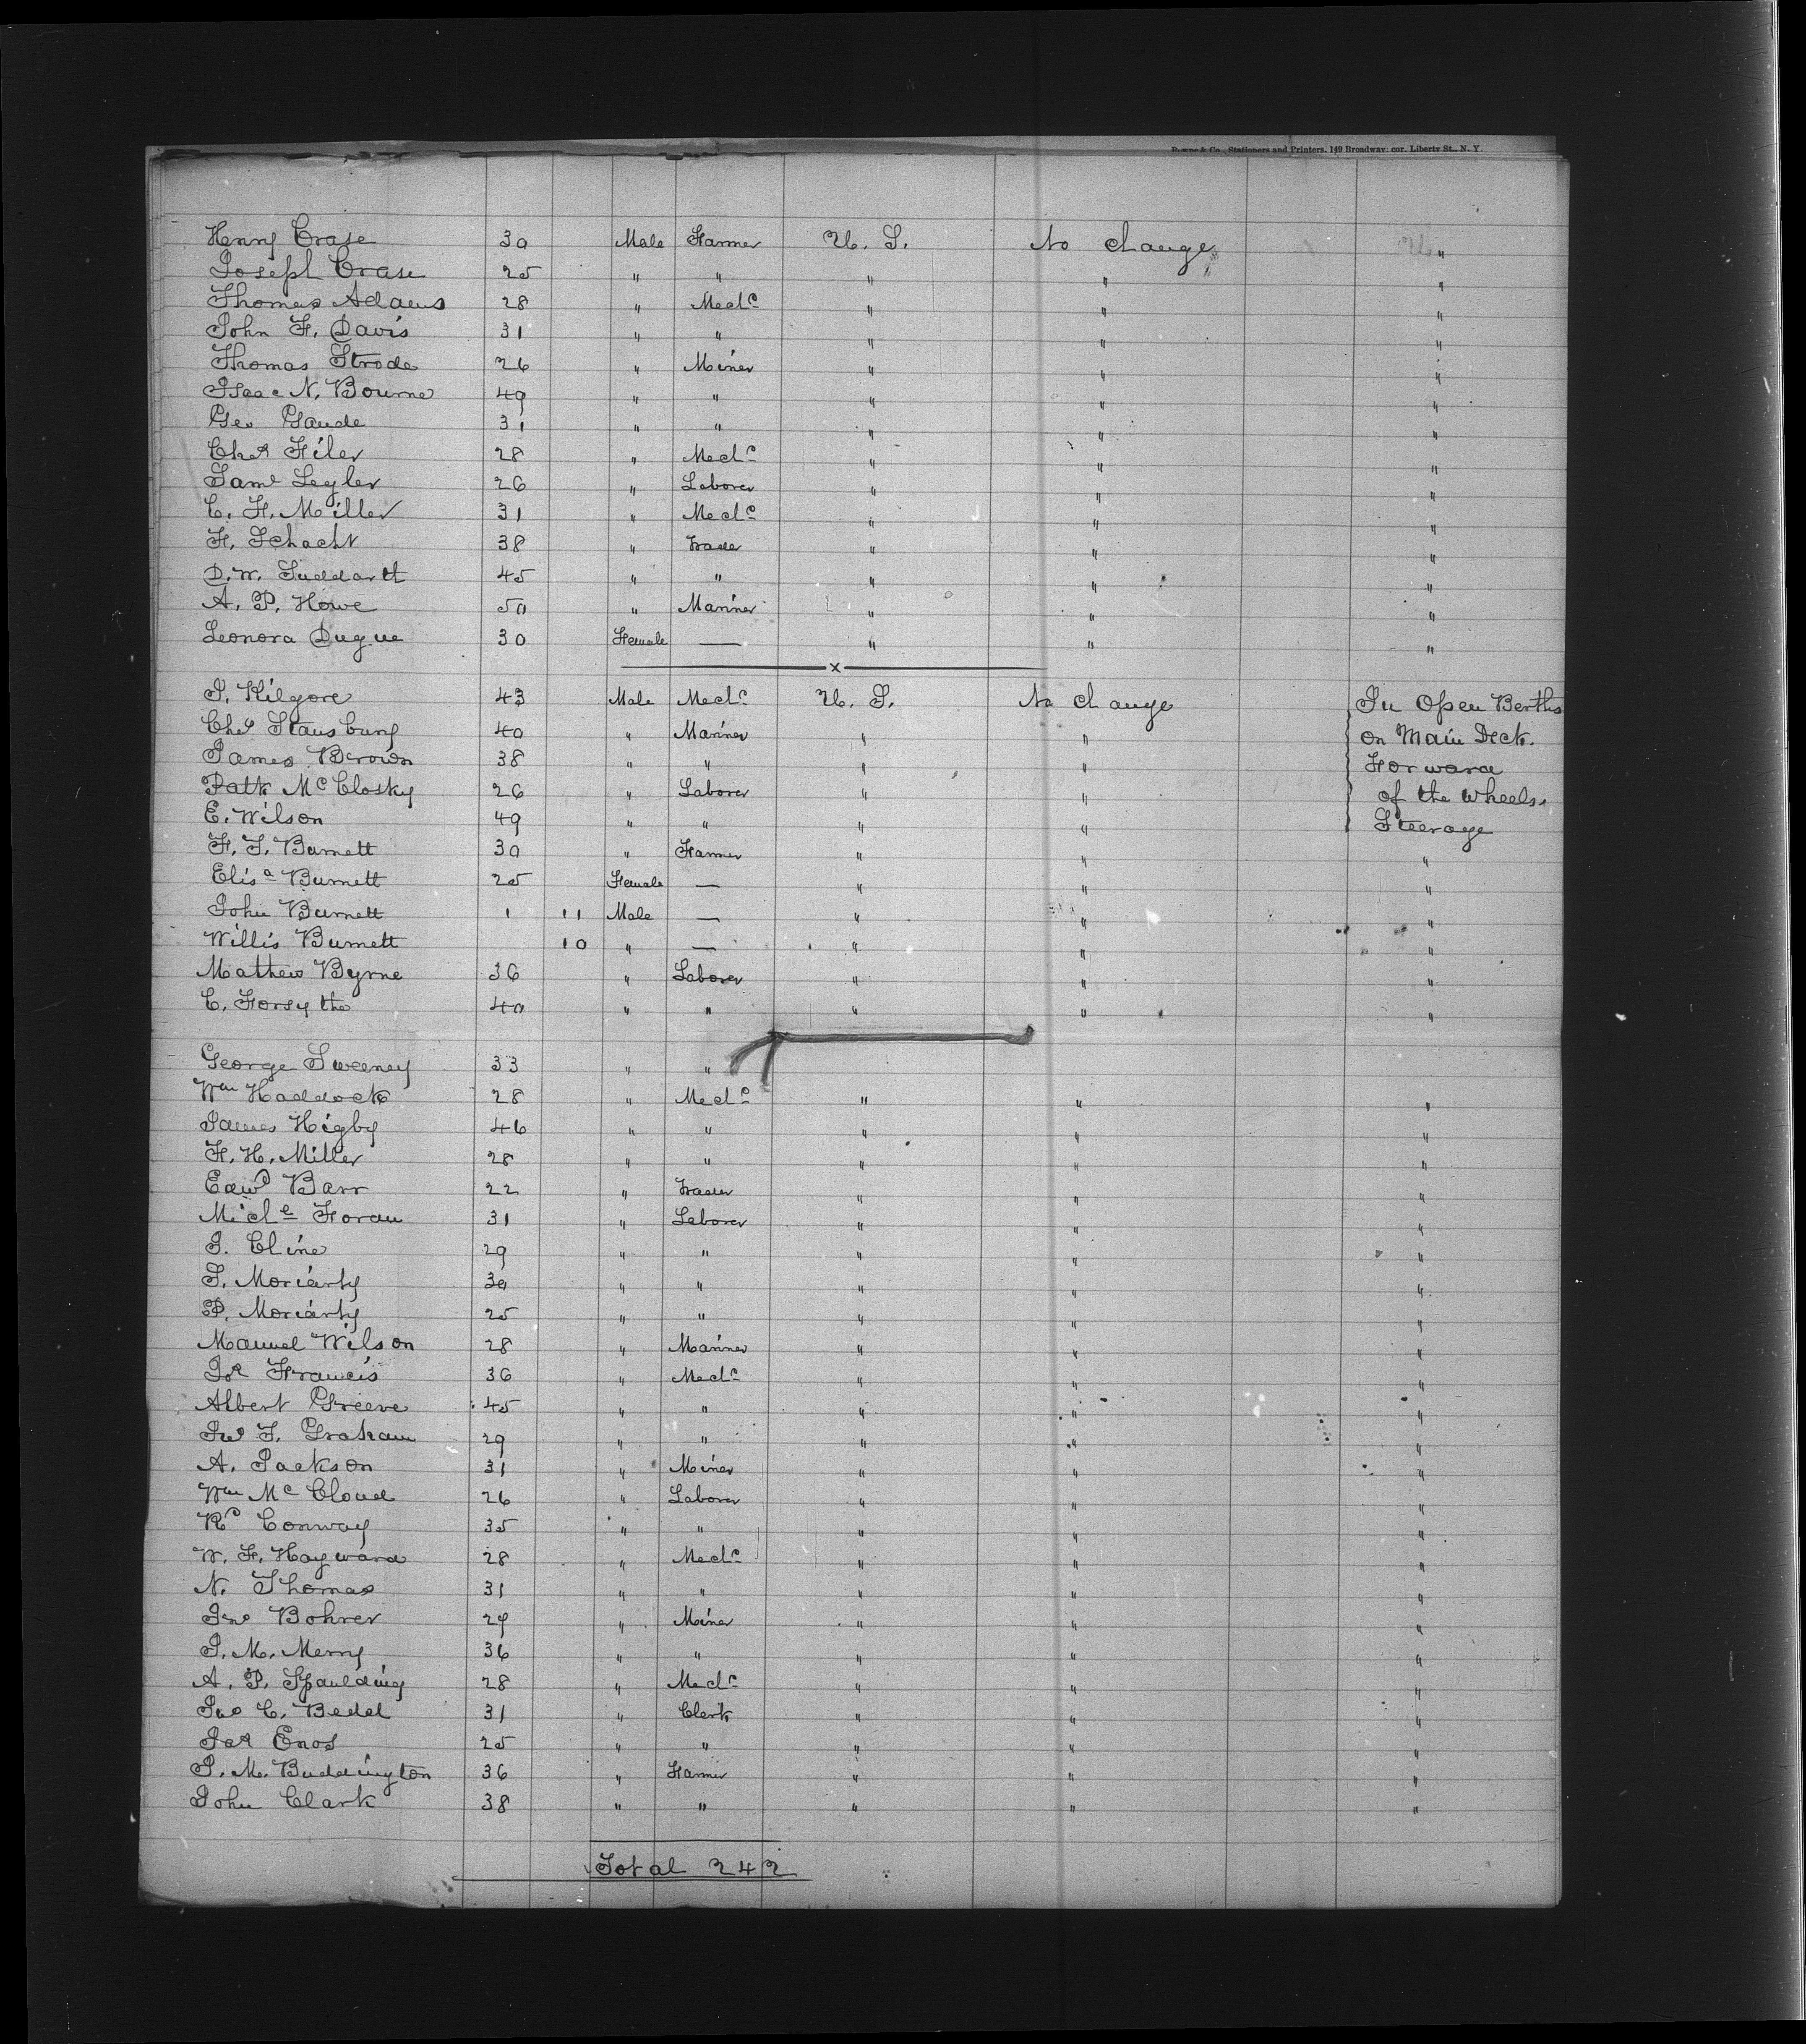 & Co., Stationers and Printers, 149 Broadway, cor. Liberty St., N. Y.
Henry Crase 30 Male Farmer U. S. No change "
Joseph Crase 25 " " " " "
Thomas Adams 28 " Mechc " " "
John F. Davis 31 " " " " "
Thomas Strode 26 " Miner " " "
Isaac N. Bourne 49 " " " " "
Geo Gaude 31 " " " " "
Chas Filer 28 " Mechc " " "
Saml Legler 26 " Laborer " " "
C. F. Miller 31 " Mechc " " "
F. Schacht 38 " Trader " " "
D. W. Suddarth 45 " " " " "
A. P. Howe 50 " Mariner " " "
Leonora Dugue 30 Female — " " "
x
J. Kilgore 43 Male Mechc U. S. No change In Open Berths
Chas Stausbury 40 " Mariner " " on Main Deck.
James Brown 38 " " " " Forward
Patk McClosky 26 " Laborer " " of the wheels.
E. Wilson 49 " " " " Steerage
F. S. Burnett 30 " Farmer " " "
Elisa Burnett 25 Female — " " "
John Burnett 1 11 Male — " " "
Willis Burnett 10 " — " " "
Mathew Byrne 36 " Laborer " " "
C. Forsythe 40 " " " " "
George Sweeney 33 " "
Wm Haddock 28 " Mechc " " "
James Higby 46 " " " " "
F. H. Miller 28 " " " " "
Edwd Barr 22 " Trader " " "
Michl Foran 31 " Laborer " " "
J. Cline 29 " " " " "
T. Moriarty 30 " " " " "
P. Moriarty 25 " " " " "
Manuel Wilson 28 " Mariner " " "
Jos Francis 36 " Mechc " " "
Albert Greeve 45 " " " " "
Jno T. Graham 29 " " " " "
A. Jackson 31 " Miner " " "
Wm McCloud 26 " Laborer " " "
Rd Conway 35 " " " " "
W. F. Hayward 28 " Mechc " " "
N. Thomas 31 " " " " "
Jno Bohrer 29 " Miner " " "
J. M. Merry 36 " " " " "
A. P. Spaulding 28 " Mechc " " "
Jno C. Bedel 31 " Clerk " " "
Jas Enos 25 " " " " "
J. M. Buddington 36 " Farmer " " "
John Clark 38 " " " " "
Total 242